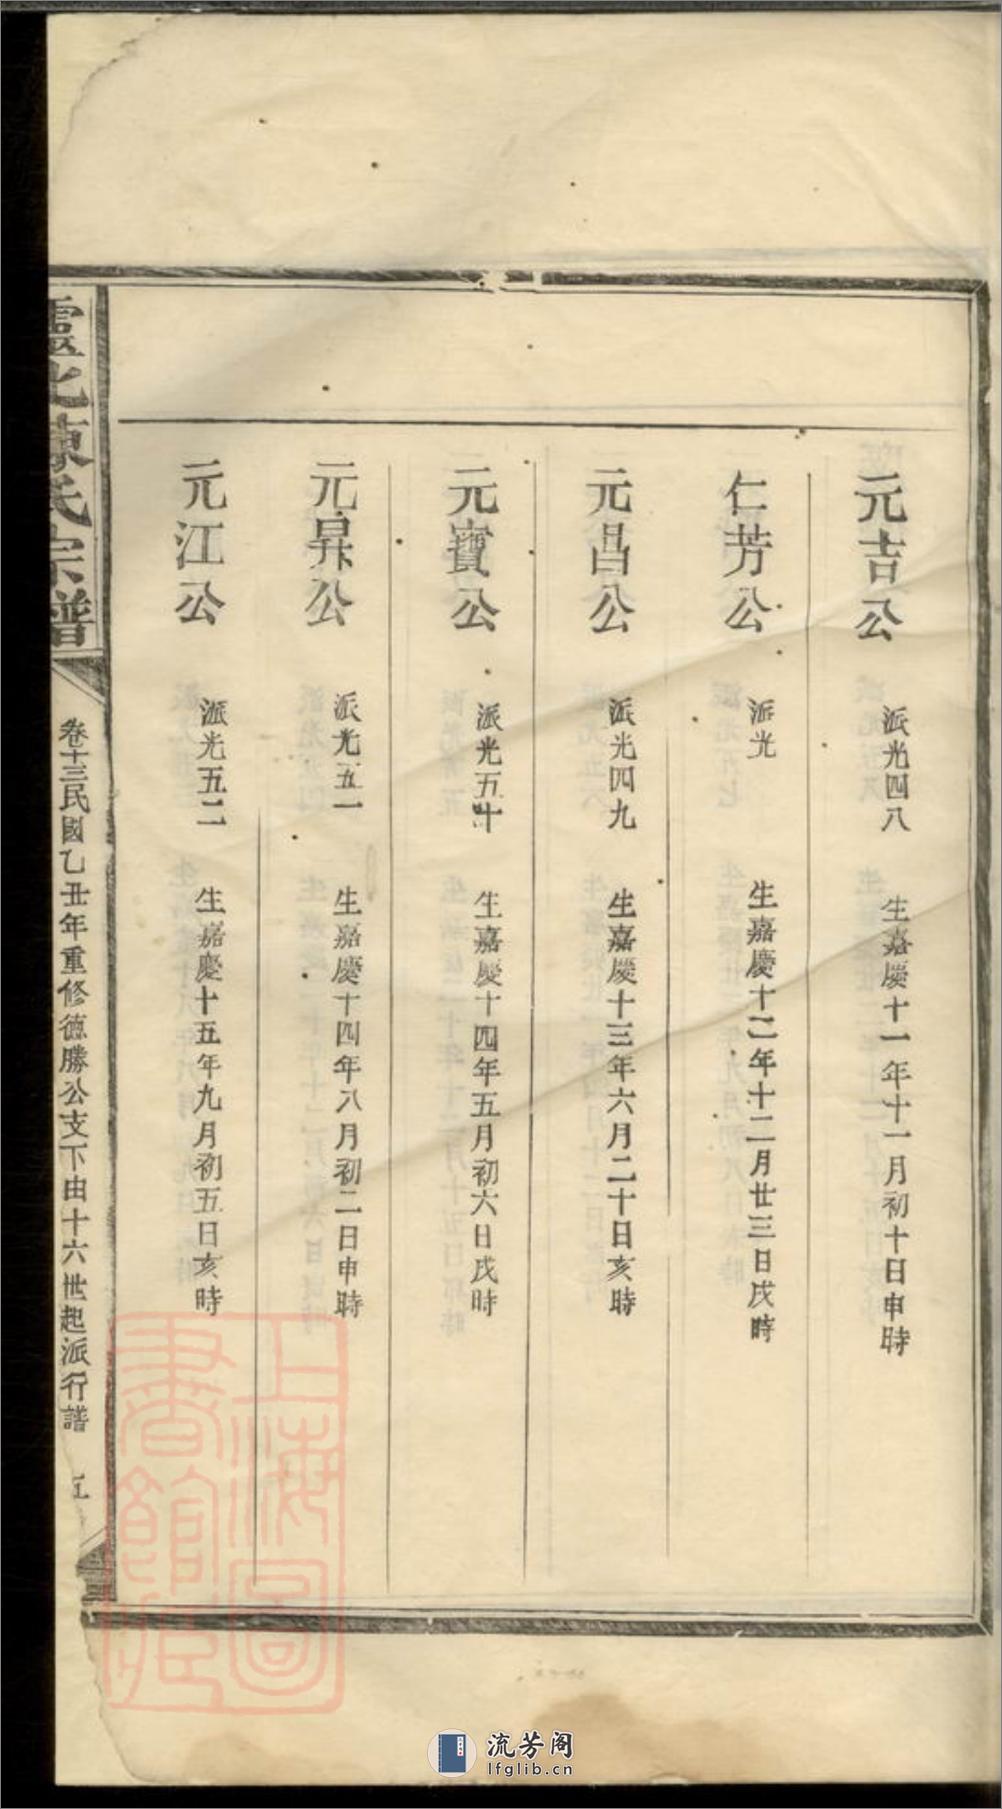 元吉公 派光四八 生嘉慶十一年十一月初十日申時
仁芳公 派光 生嘉慶十二年十二月廿三日戌時
元昌公 派光四九 生嘉慶十三年六月二十日亥時
元寶公 派光五十 生嘉慶十四年五月初六日戌時
元昇公 派光五一 生嘉慶十四年八月初二日申時
元江公 派光五二 生嘉慶十五年九月初五日亥時
靈北陳氏宗譜
卷十三民國乙丑年重修德勝公支下由十六世起派行譜 五
上海圖
書館藏
流芳阁
lfglib.cn